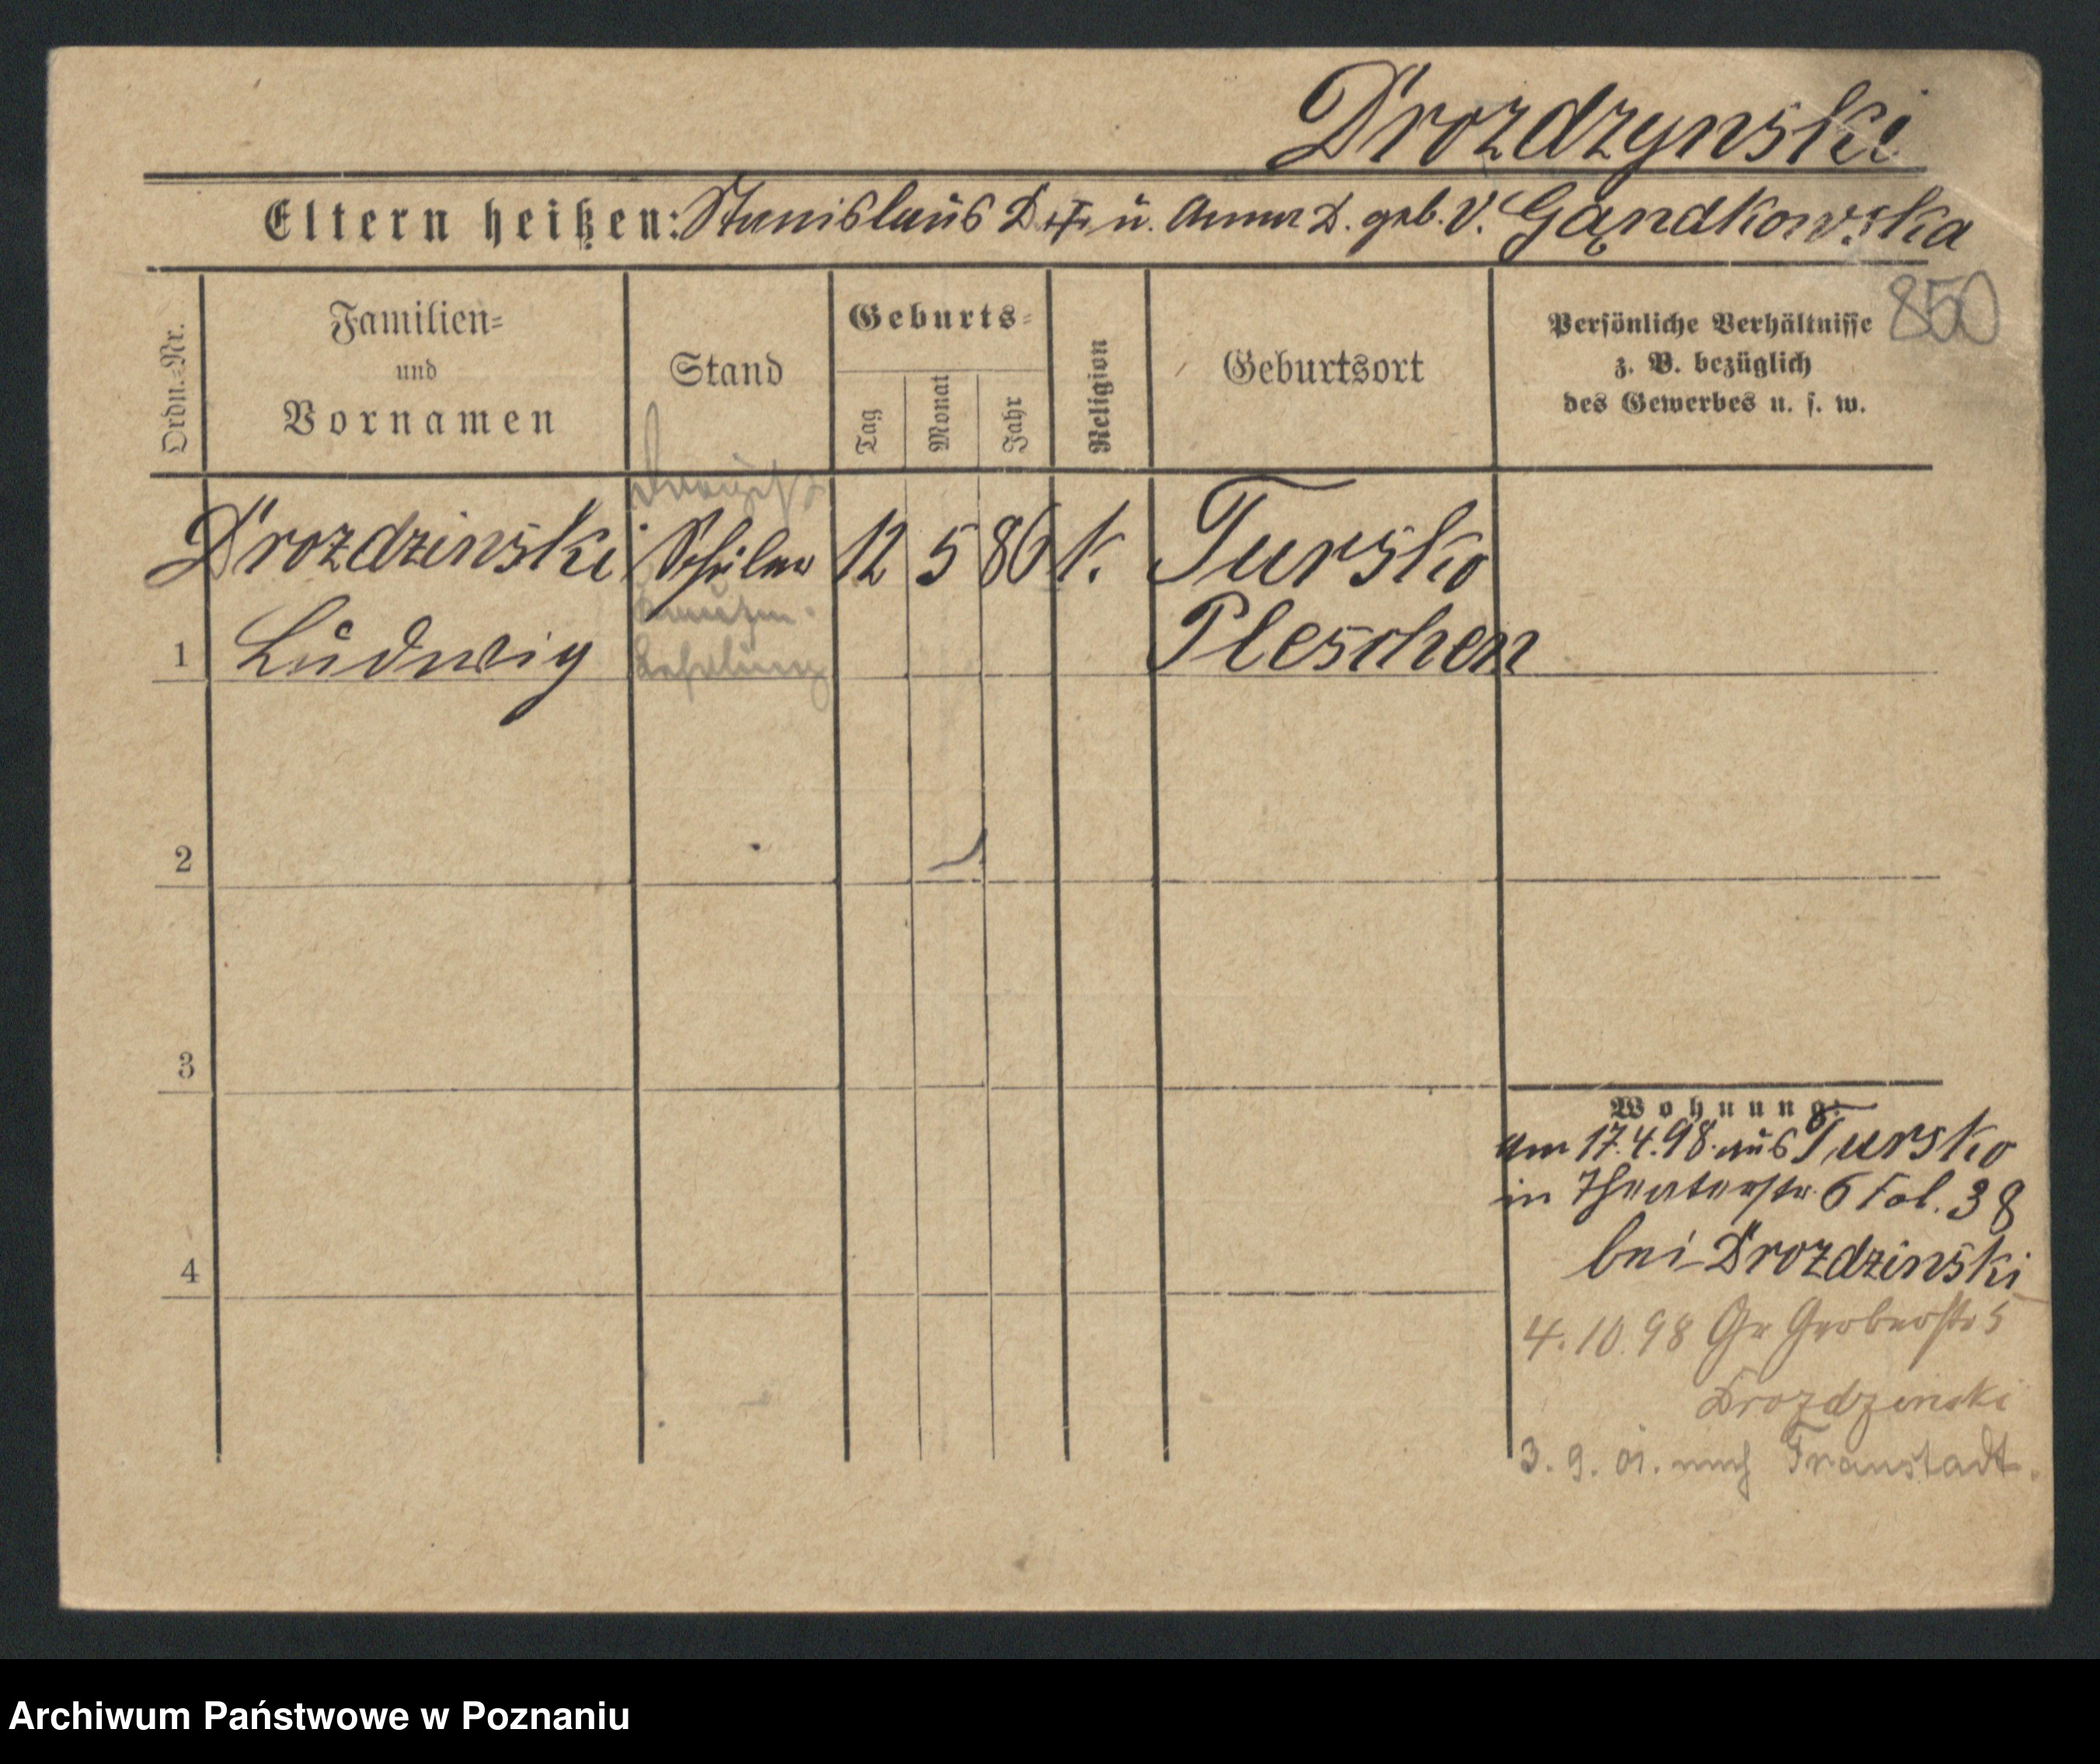 Drozdzynski
Eltern heißen: Stanislaus D. u. Anna D. geb. v. Gąndkowska
850
Ordn.=Nr.
Familien=
und
Vornamen
Stand
Geburts=
Tag
Monat
Jahr
Religion
Geburtsort
Persönliche Verhältnisse
z. B. bezüglich
des Gewerbes u. s. w.
Drozdzinski Schüler 12 5 86 k. Tursko
1 Ludwig Lehrling Pleschen
2
3
4
Wohnung:
am 17.4.98. aus Tursko
in Theaterstr. 6 Fol. 38
bei Drozdzinski
4.10.98 Gr Gerberstr 5
Drozdzinski
3. 9. 01. nach Fraustadt.
Archiwum Państwowe w Poznaniu